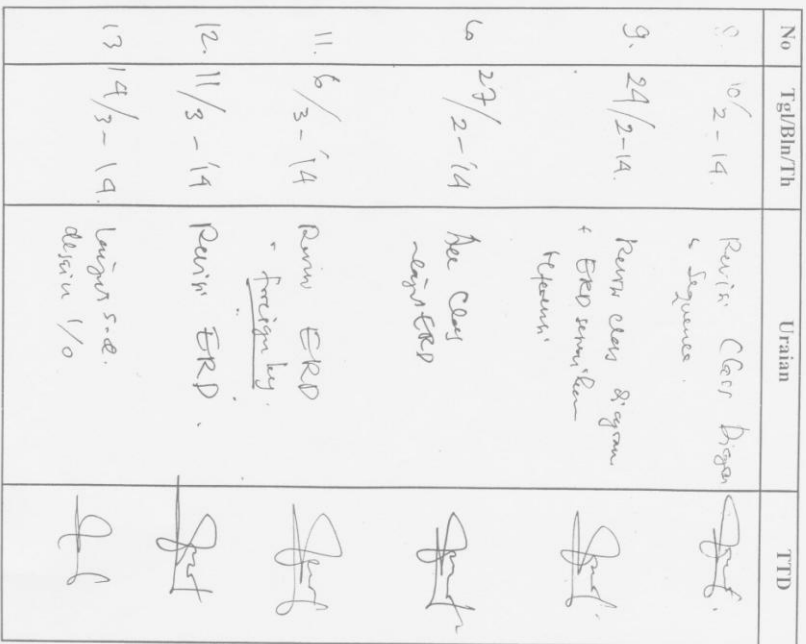 No Tgl/Bln/Th Uraian TTD
8. 10/2-14. Revisi Class Diagram
Sequence.
9. 24/2-14. Revisi class diagram
+ ERD sesuaikan
27/2-'14 Acc Class
ERD
11. 6/3-'14 Revisi ERD
foreign key.
12. 11/3-'14 Revisi ERD.
13 14/3-14. Lanjut s.d.
desain I/O